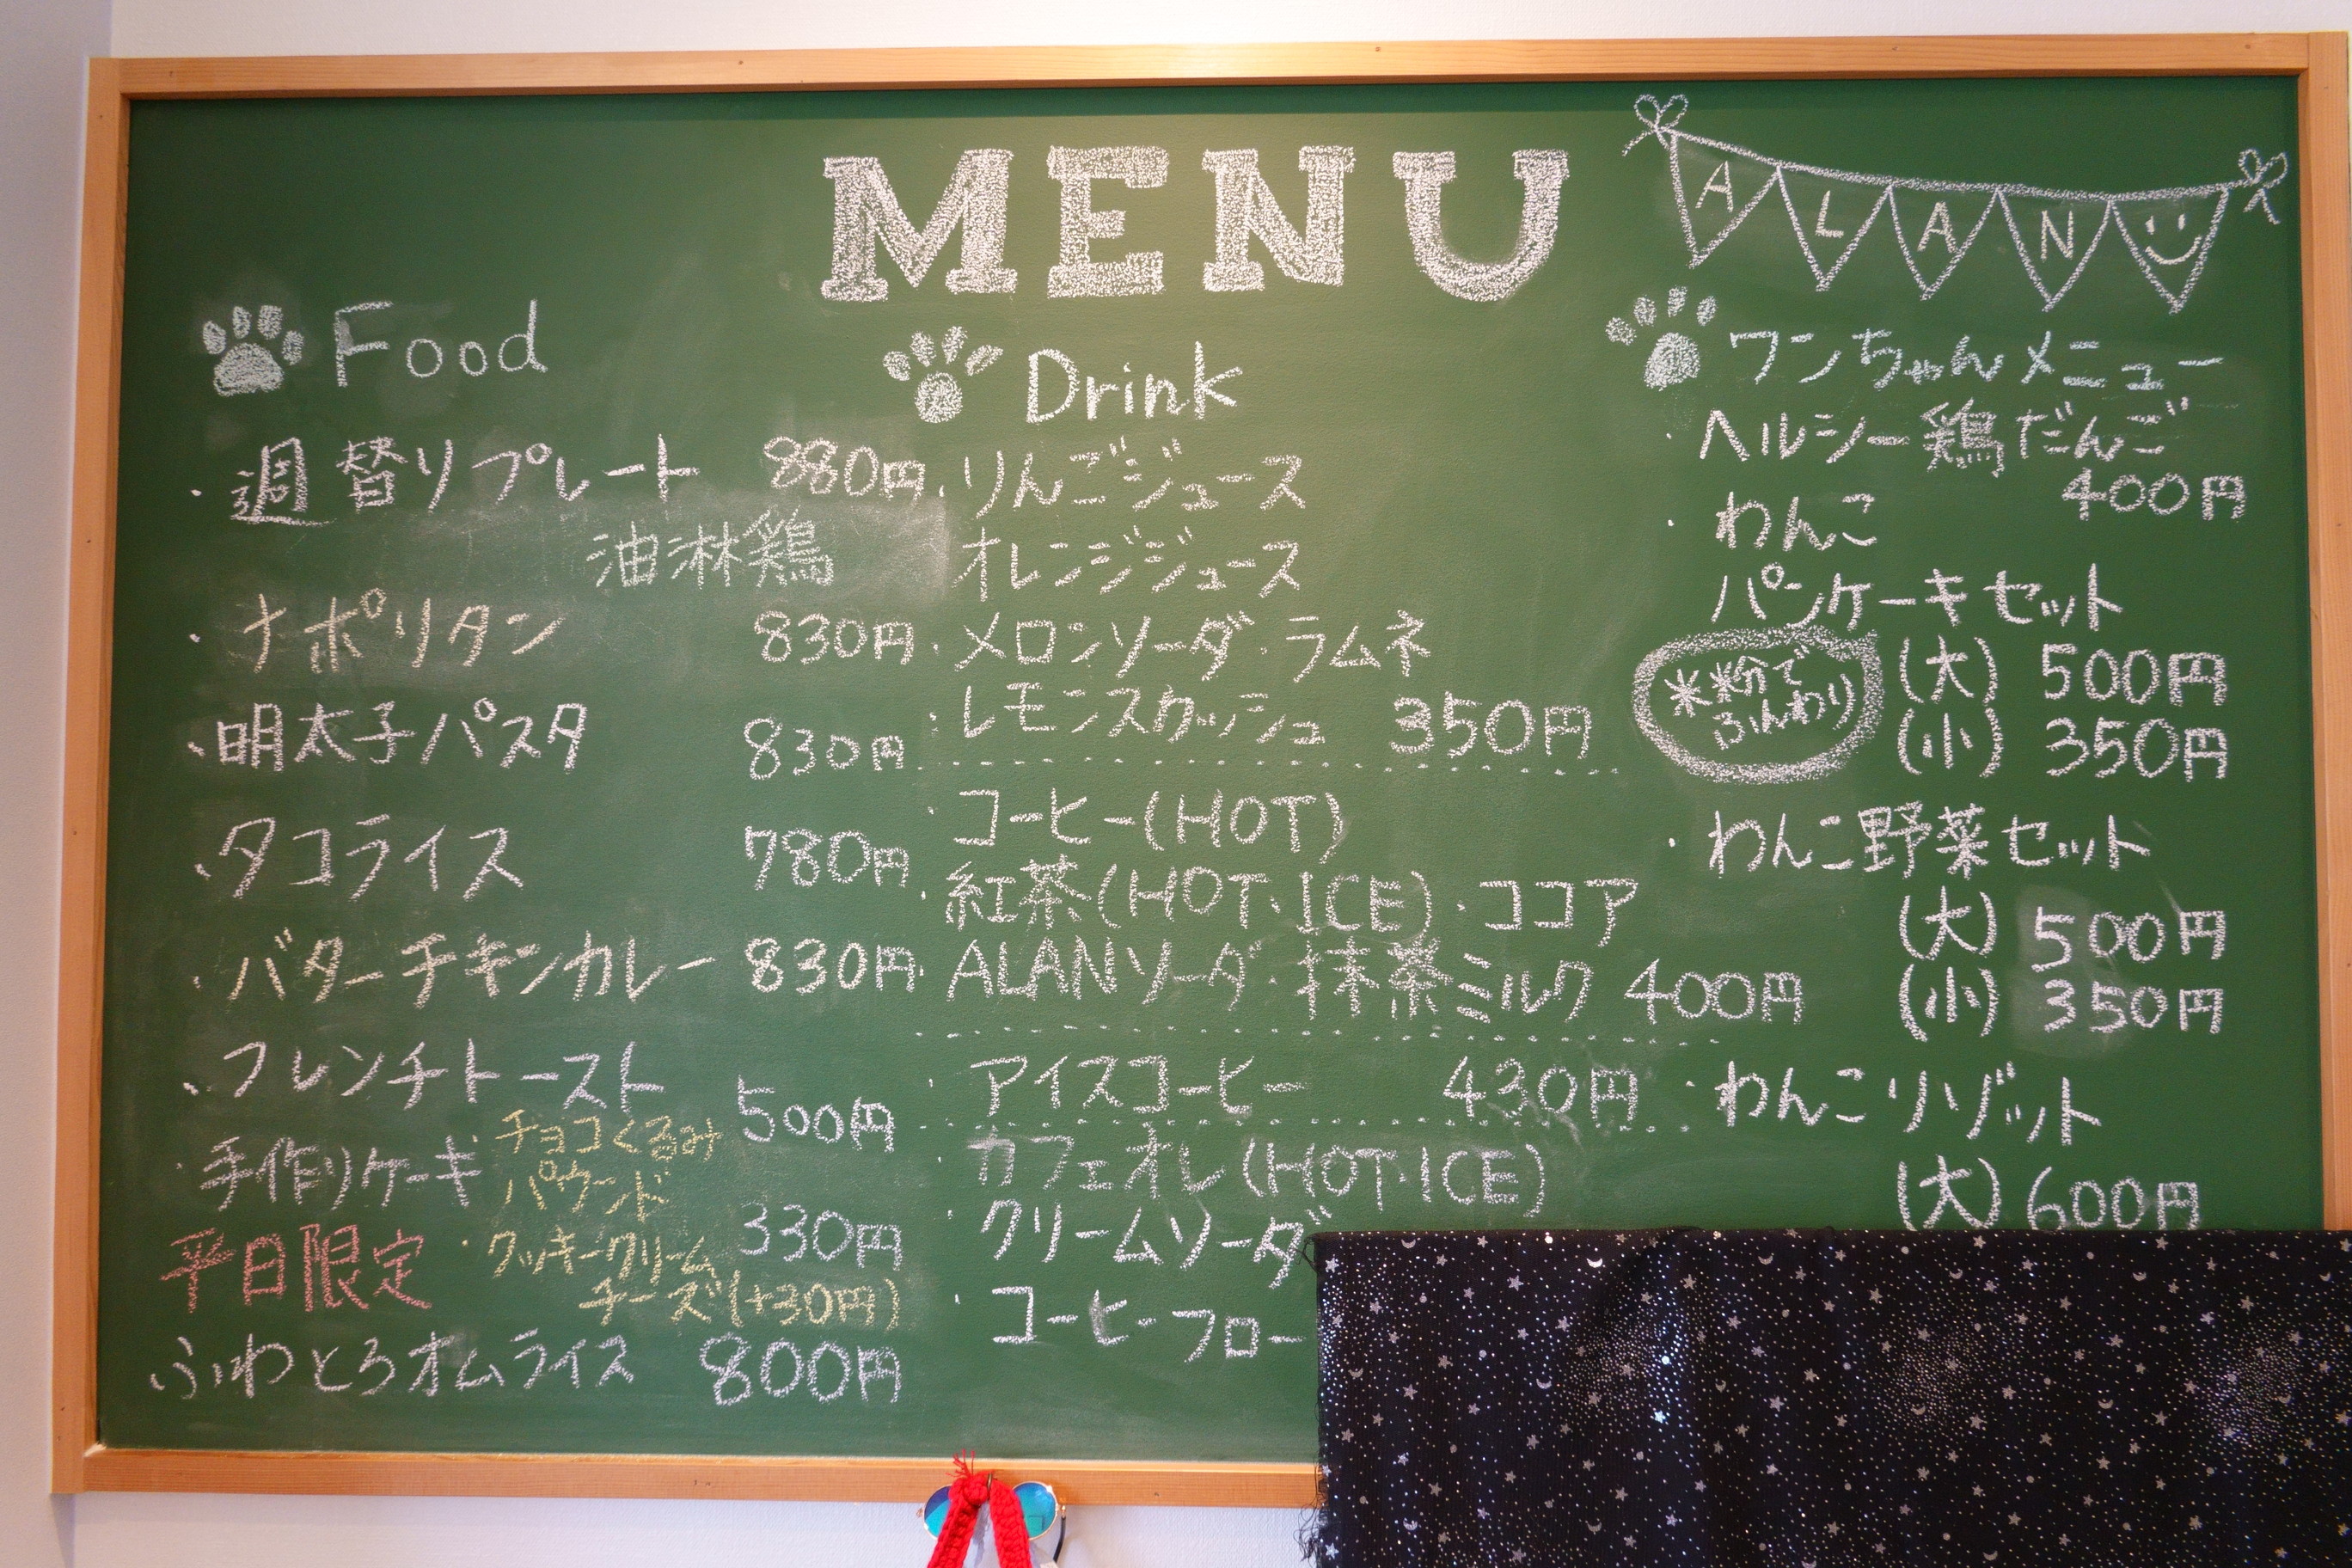 MENU
ALAN
Food
・週替りプレート 880円
油淋鶏
・ナポリタン 830円
・明太子パスタ 830円
・タコライス 780円
・バターチキンカレー 830円
・フレンチトースト 500円
・手作りケーキ 330円
チョコくるみ
パウンド
・クッキークリーム
チーズ(+30円)
平日限定
ふわとろオムライス 800円
Drink
・りんごジュース
オレンジジュース
・メロンソーダ・ラムネ
・レモンスカッシュ 350円
・コーヒー(HOT)
・紅茶(HOT・ICE)・ココア
・ALANソーダ・抹茶ミルク 400円
・アイスコーヒー 430円
・カフェオレ(HOT・ICE)
・クリームソーダ
・コーヒーフロー
ワンちゃんメニュー
・ヘルシー鶏だんご
400円
・わんこ
パンケーキセット
米粉で
ふんわり
(大) 500円
(小) 350円
・わんこ野菜セット
(大) 500円
(小) 350円
・わんこリゾット
(大) 600円